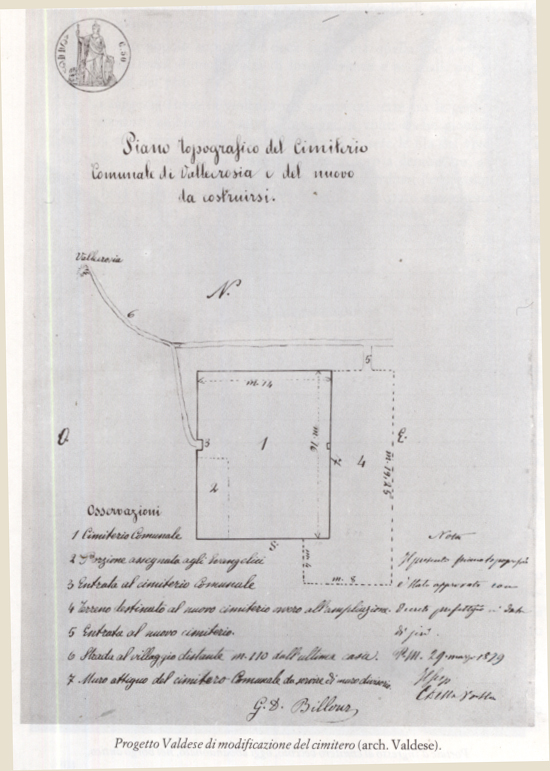 C. 50
Piano topografico del Cimiterio
Comunale di Vallecrosia e del nuovo
da costruirsi.
Vallecrosia
N.
6
5
m. 14
O
3
1
m. 16
7
4
E.
m. 19.25
2
Osservazioni
S.
1 Cimiterio Comunale
Nota
2 Porzione assegnata agli Evangelici
m. 4
Il presente piano topografico
3 Entrata al cimiterio Comunale
m. 8
è stato approvato con
4 Terreno destinato al nuovo cimiterio ossia all'ampliazione.
Decreto prefettizio in data
5 Entrata al nuovo cimiterio.
di jeri.
6 Strada al villaggio distante m. 110 dall'ultima casa.
P.M. 29 marzo 1879
7 Muro attiguo del cimitero Comunale da servire di muro divisorio.
G. D. Billour
Progetto Valdese di modificazione del cimitero (arch. Valdese).